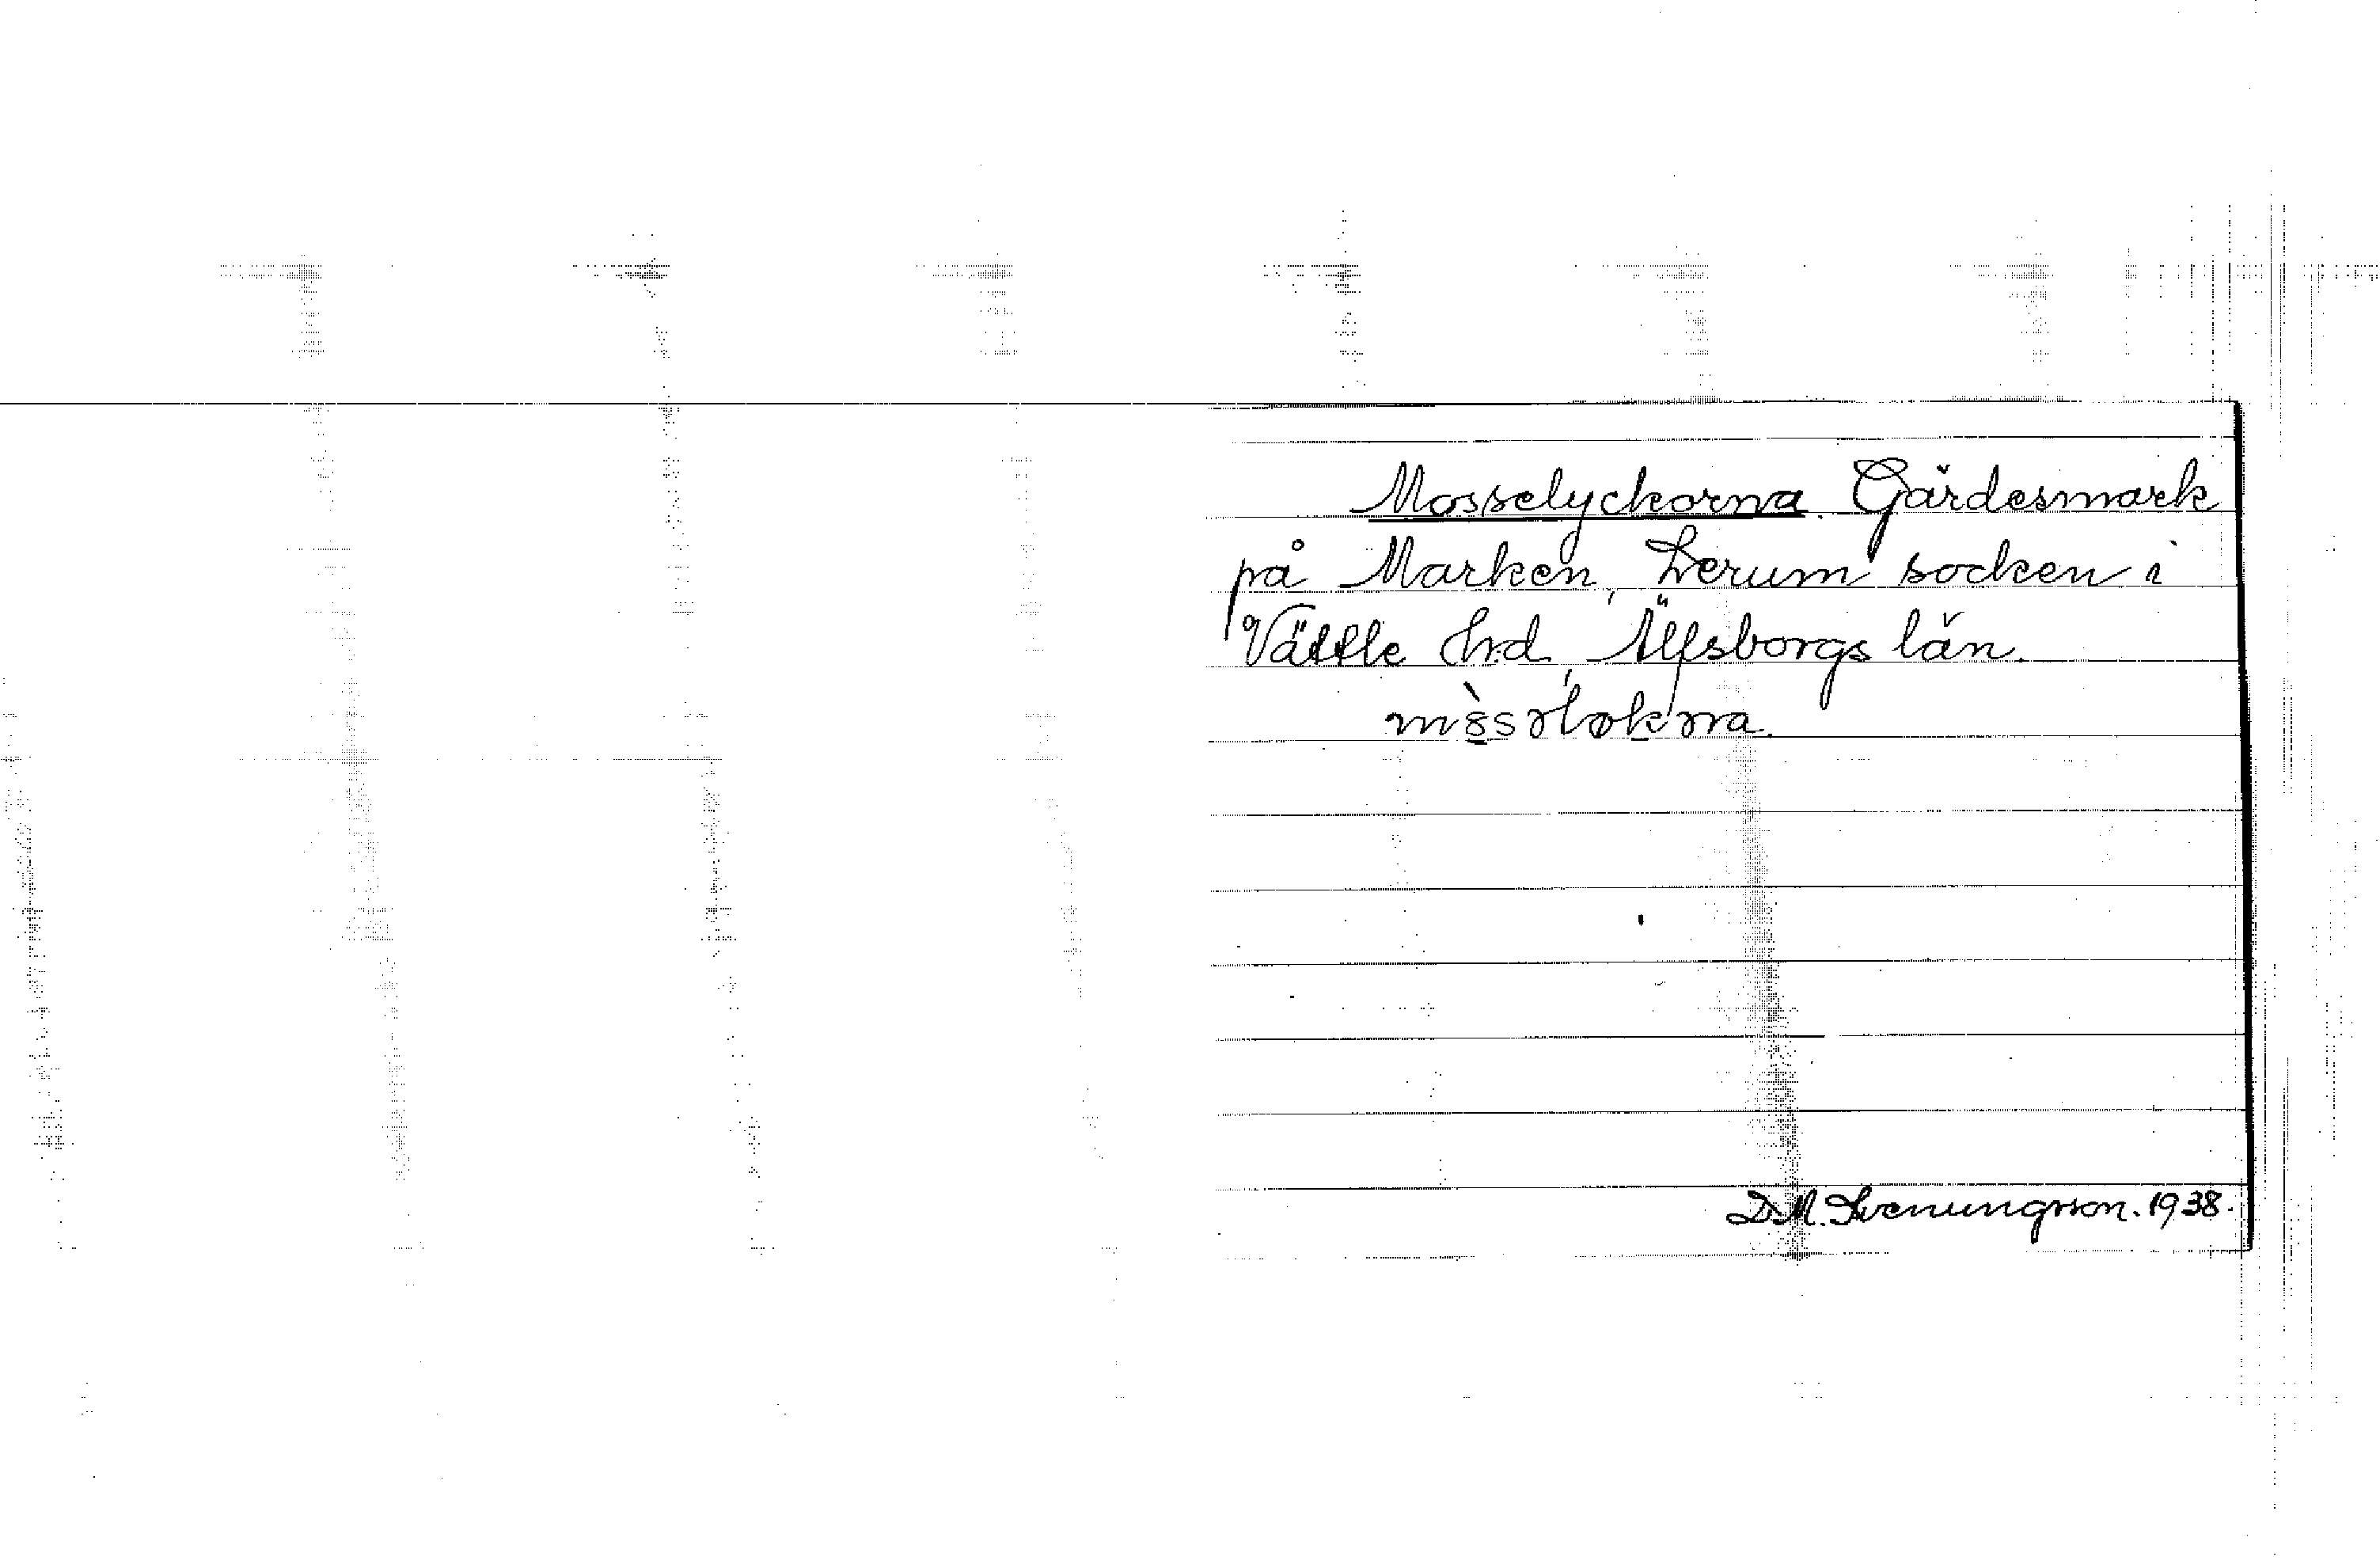 Mosselyckorna. Gärdesmark
på Marken, Lerum socken i
Vättle hrd, Älfsborgs län.
D.M. Svenungsson. 1938.